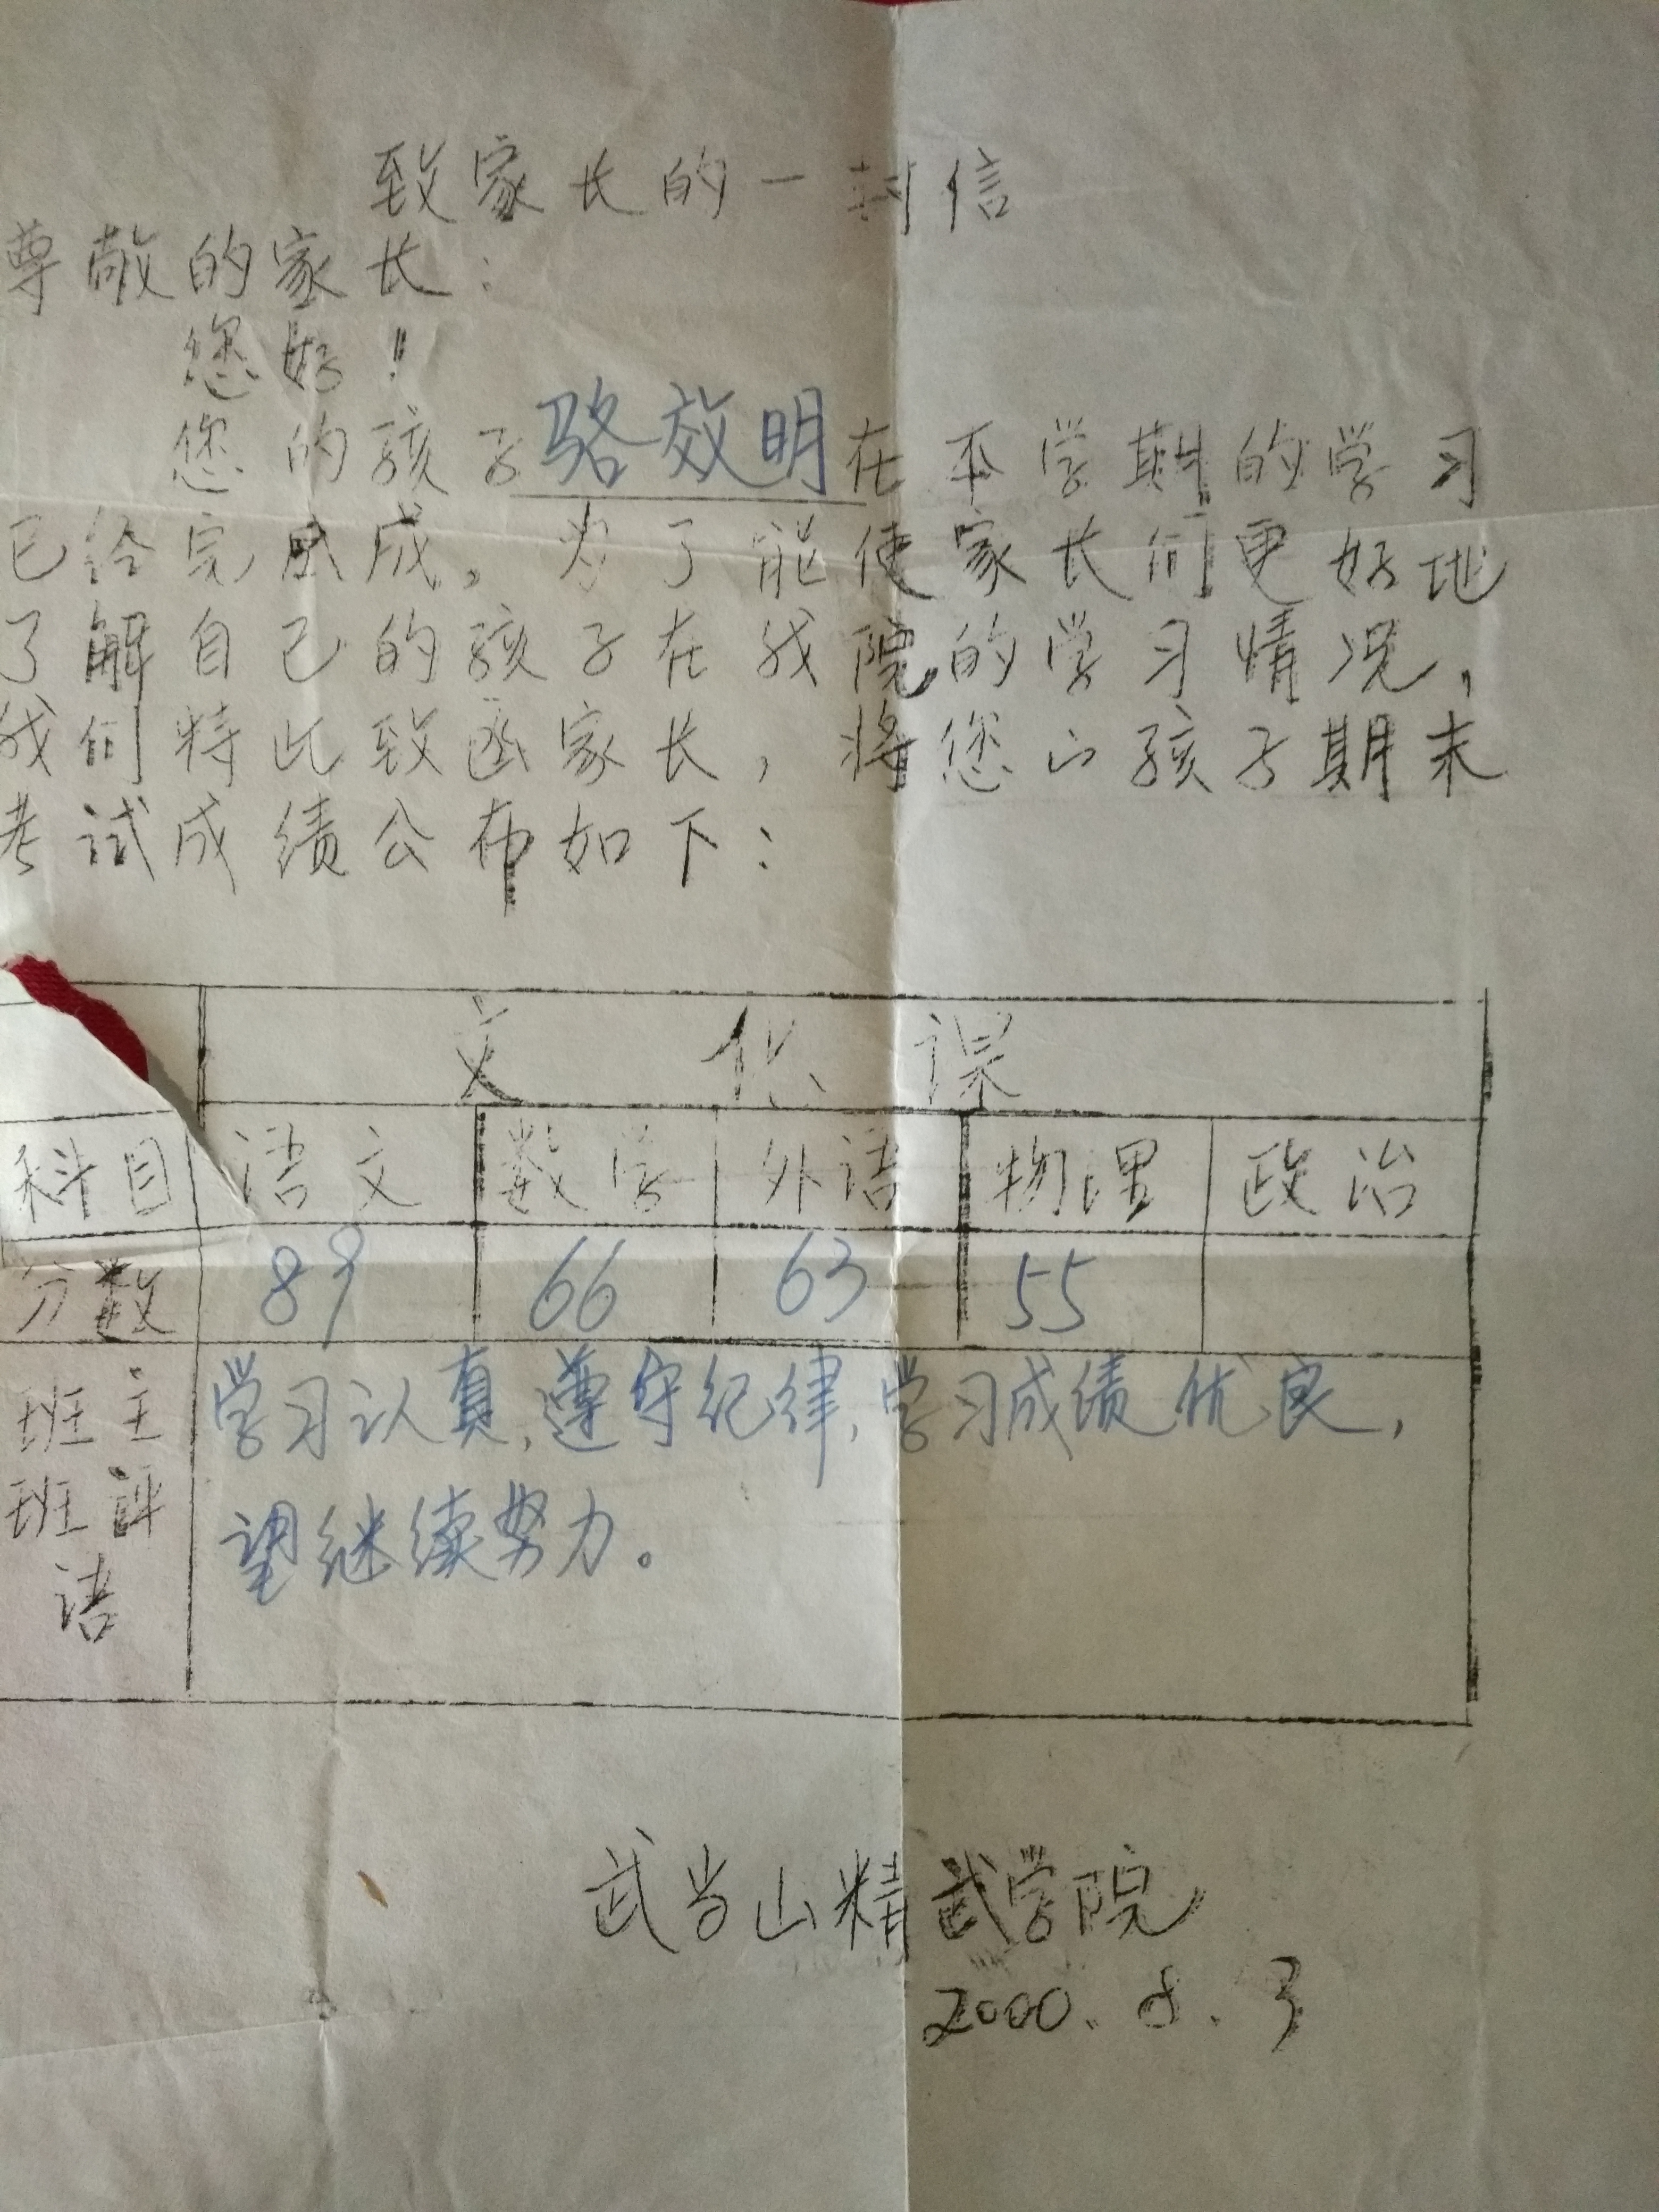 致家长的一封信
尊敬的家长：
您好！
您的孩子骆效明在本学期的学习
已经完成，为了能使家长们更好地
了解自己的孩子在我院的学习情况，
我们特此致函家长，将您的孩子期末
考试成绩公布如下：
文化课
科目 语文 数学 外语 物理 政治
分数 89 66 63 55
班主
班评
语
学习认真，遵守纪律，学习成绩优良，
望继续努力。
武当山精武学院
2000.8.3